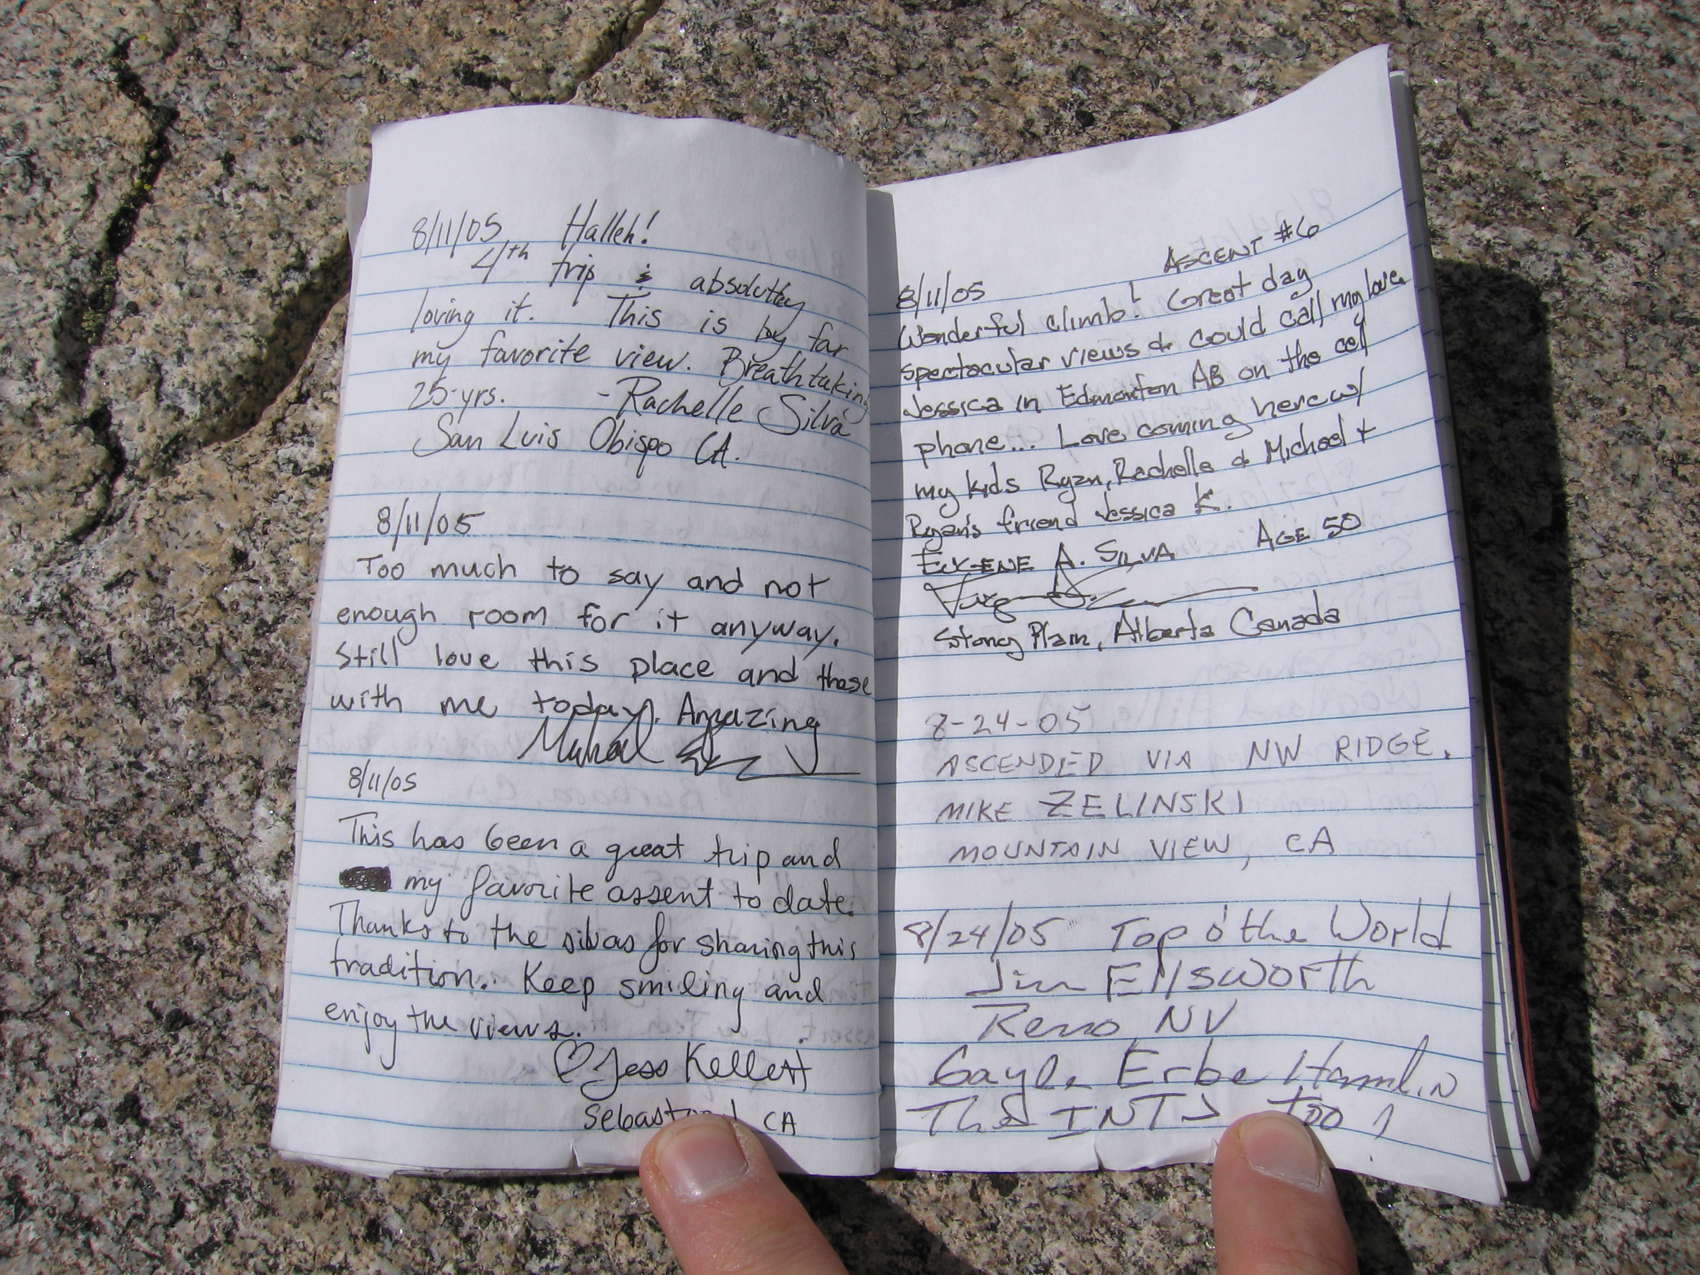 8/11/05 Halleh!
4th trip & absolutley
loving it. This is by far
my favorite view. Breathtaking
25-yrs. -Rachelle Silva
San Luis Obispo CA.
8/11/05
Too much to say and not
enough room for it anyway.
Still love this place and those
with me today. Amazing
8/11/05
This has been a great trip and
my favorite assent to date.
Thanks to the silvas for sharing this
tradition. Keep smiling and
enjoy the views.
Jess Kellett
CA
ASCENT #6
8/11/05
Wonderful climb! Great day
spectacular views & could call my love
Jessica in Edmonton AB on the cell
phone... Love coming here w/
my kids Ryan, Rachelle & Michael +
Ryan's friend Jessica K.
EUGENE A. SILVA AGE 50
Stony Plain, Alberta Canada
8-24-05
ASCENDED VIA NW RIDGE.
MIKE ZELINSKI
MOUNTAIN VIEW, CA
8/24/05 Top o' the World
Jim Ellsworth
Reno NV
Gayle Erbe Hamlin
Too